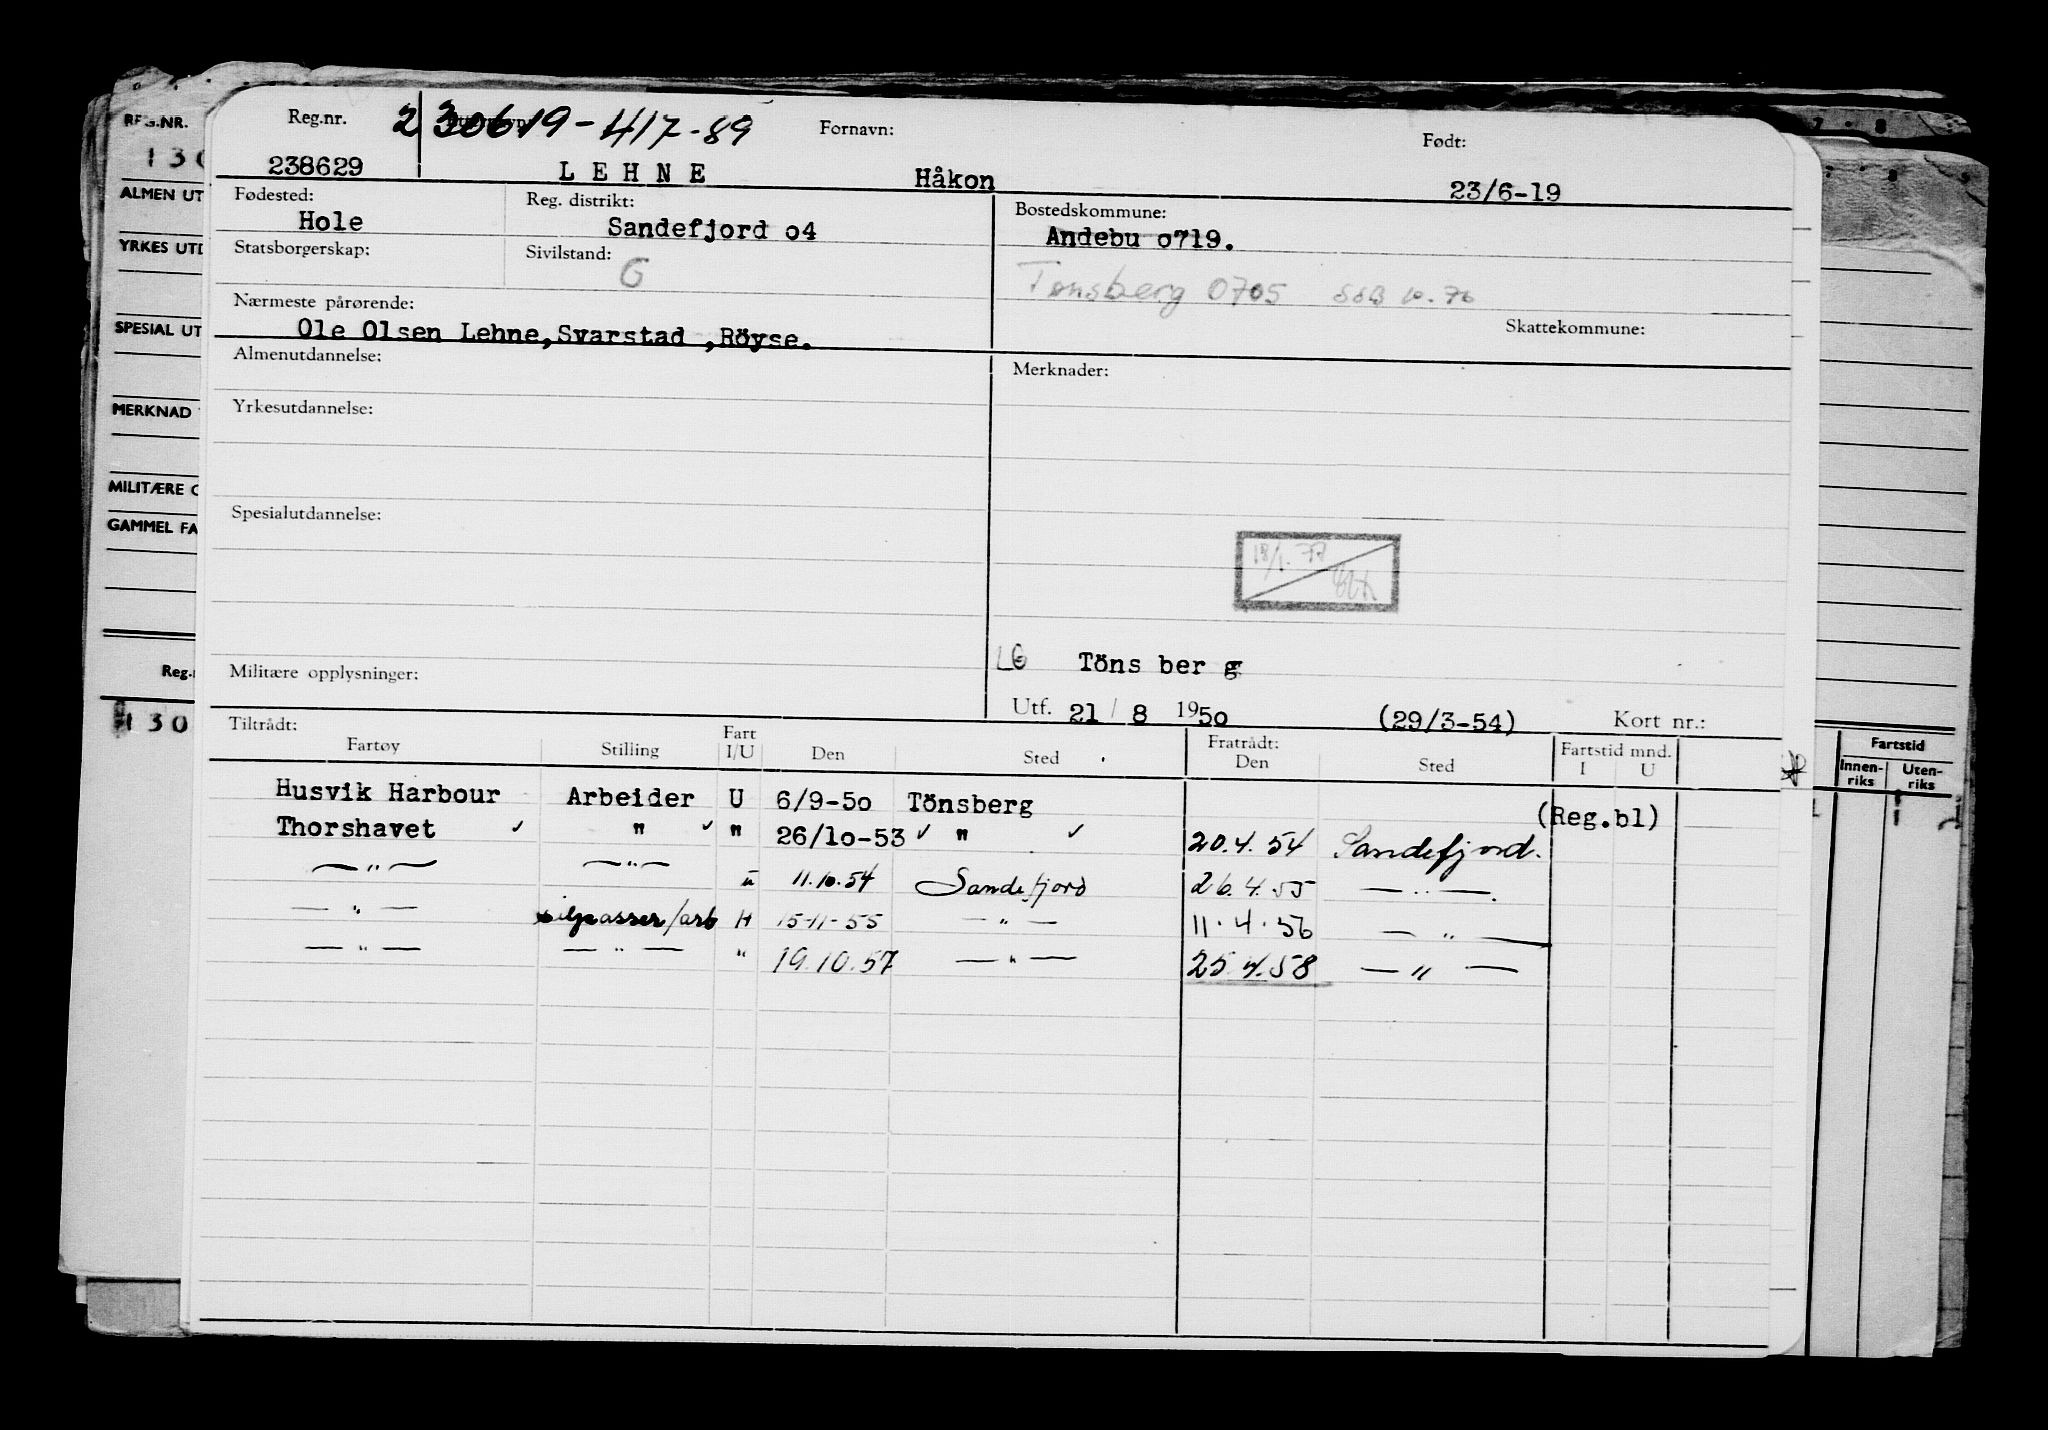 REG.NR.
130
ALMEN UT
YRKES UTD
SPESIAL UT
MERKNAD
MILITÆRE
GAMMEL FA
Reg.
130
Reg.nr. 2 30619-417-89 Fornavn: Født:
238629 LEHNE Håkon 23/6-19
Fødested: Reg. distrikt: Bostedskommune:
Hole Sandefjord o4 Andebu o719.
Statsborgerskap: Sivilstand: G
Tønsberg 0705 SSB 10.76
Nærmeste pårørende: Skattekommune:
Ole Olsen Lehne,Svarstad ,Röyse.
Almenutdannelse: Merknader:
Yrkesutdannelse:
Spesialutdannelse:
18/1.77
Töns ber g
Militære opplysninger:
Utf. 21 / 8 1950 (29/3-54) Kort nr.:
Tiltrådt: Fratrådt: Fartstid mnd.
Fartøy Stilling Fart I/U Den Sted Den Sted I U
Husvik Harbour Arbeider U 6/9-5o Tönsberg (Reg.bl)
Thorshavet ✓ " ✓ " 26/1o-53 ✓ " ✓ 20.4.54 Sandefjord.
—"— —"— u 11.10.54 Sandefjord 26.4.55 —"—.
—"— oilpasser/arb H 15-11-55 —"— 11.4.56 —"—
—"— —"— " 19.10.57 —"— 25.4.58 —"—
Fartstid
Innen-
riks
Uten-
riks